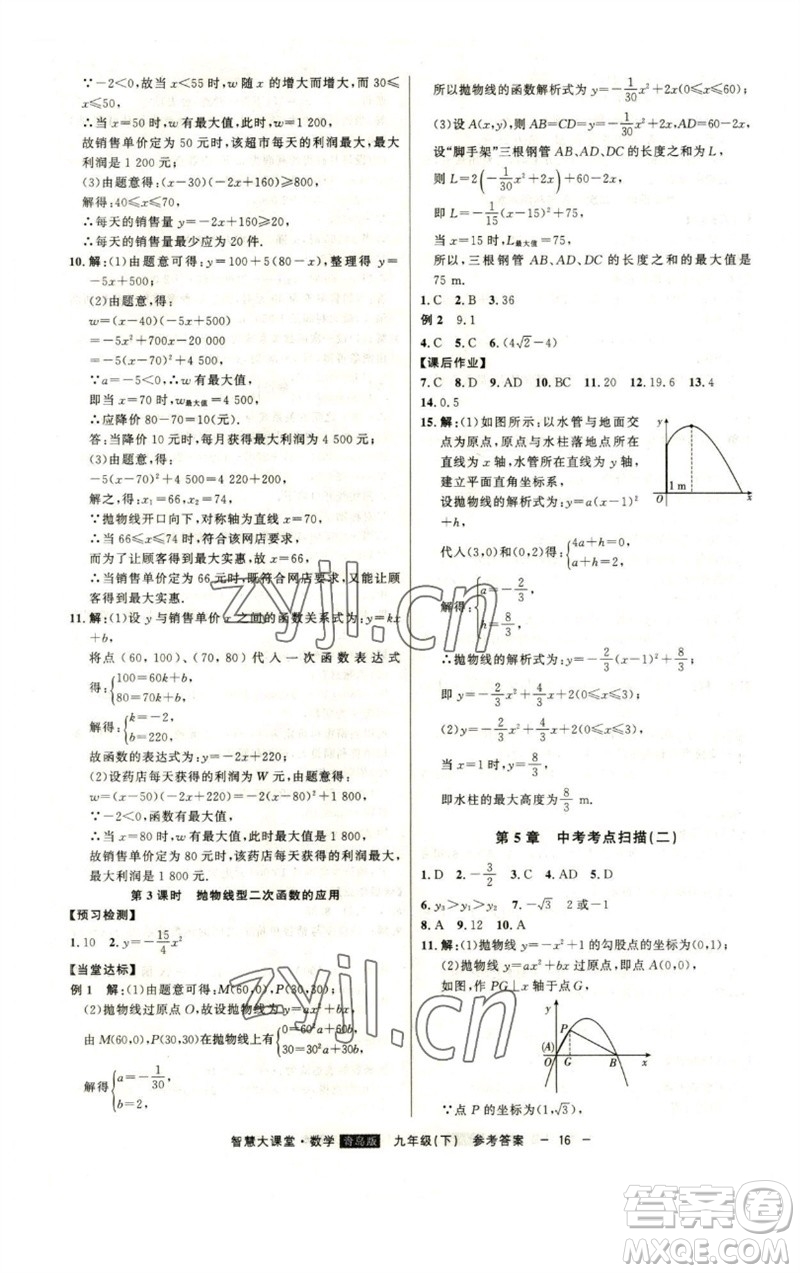 ∵-2<0,故当x<55时,w随x的增大而增大,而30≤
x≤50,
∴当x=50时,w有最大值,此时,w=1 200,
故销售单价定为50元时,该超市每天的利润最大,最大
利润是1 200元;
(3)由题意得:(x-30)(-2x+160)≥800,
解得:40≤x≤70,
∴每天的销售量y=-2x+160≥20,
∴每天的销售量最少应为20件.
10.解:(1)由题意可得:y=100+5(80-x),整理得 y=
-5x+500;
(2)由题意,得:
w=(x-40)(-5x+500)
=-5x²+700x-20 000
=-5(x-70)²+4 500
∵a=-5<0,∴w有最大值,
即当x=70时,w最大值=4 500,
∴应降价80-70=10(元).
答:当降价10元时,每月获得最大利润为4 500元;
(3)由题意,得:
-5(x-70)²+4 500=4 220+200,
解之,得:x₁=66,x₂=74,
∵抛物线开口向下,对称轴为直线x=70,
∴当66≤x≤74时,符合该网店要求,
而为了让顾客得到最大实惠,故x=66,
∴当销售单价定为66元时,既符合网店要求,又能让顾
客得到最大实惠.
11.解:(1)设y与销售单价x之间的函数关系式为:y=kx
+b,
将点(60,100)、(80,70)代入一次函数表达式
得:{100=60k+b,
80=70k+b,
解得:{k=-2,
b=220,
故函数的表达式为:y=-2x+220;
(2)设药店每天获得的利润为W元,由题意得:
w=(x-50)(-2x+220)=-2(x-80)²+1 800,
∵-2<0,函数有最大值,
∴当x=80时,w有最大值,此时最大值是1 800,
故销售单价定为80元时,该药店每天获得的利润最大,
最大利润是1 800元.
第3课时 抛物线型二次函数的应用
【预习检测】
1.10 2.y=-15/4x²
【当堂达标】
例1 解:(1)由题意可得:M(60,0),P(30,30);
(2)抛物线过原点O,故设抛物线为y=ax²+bx,
由M(60,0),P(30,30)在抛物线上有:{0=60²a+60b,
30=30²a+30b,
解得{a=-1/30,
b=2,
所以抛物线的函数解析式为y=-1/30x²+2x(0≤x≤60);
(3)设A(x,y),则AB=CD=y=-1/30x²+2x,AD=60-2x,
设“脚手架”三根钢管AB、AD、DC的长度之和为L,
则L=2(-1/30x²+2x)+60-2x,
即L=-1/15(x-15)²+75,
当x=15时,L最大值=75,
所以,三根钢管AB、AD、DC的长度之和的最大值是
75 m.
1.C 2.B 3.36
例2 9.1
4.C 5.C 6.(4√2-4)
【课后作业】
7.C 8.D 9.AD 10.BC 11.20 12.19.6 13.4
14.0.5
15.解:(1)如图所示:以水管与地面交
点为原点,原点与水柱落地点所在
直线为x轴,水管所在直线为y轴,
建立平面直角坐标系,
设抛物线的解析式为y=a(x-1)²
+h,
y
1 m
O
x
代入(3,0)和(0,2),得:{4a+h=0,
a+h=2,
解得:{a=-2/3,
h=8/3,
∴抛物线的解析式为:y=-2/3(x-1)²+8/3,
即y=-2/3x²+4/3x+2(0≤x≤3);
(2)y=-2/3x²+4/3x+2(0≤x≤3),
当x=1时,y=8/3,
即水柱的最大高度为8/3 m.
第5章 中考考点扫描(二)
1.D 2.-3/2 3.C 4.AD 5.D
6.y₃>y₁>y₂ 7.-√3 2或-√3
8.A 9.12 10.A
11.解:(1)抛物线y=-x²+1的勾股点的坐标为(0,1);
(2)抛物线y=ax²+bx过原点,即点A为(0,0),
如图,作PG⊥x轴于点G,
y
P
(A)
O
G
B
x
∵点P的坐标为(1,√3),
智慧大课堂·数学 青岛版 九年级(下) 参考答案 - 16 -
zyjl.cn
zyjl.cn
答案圈
MXQE.COM